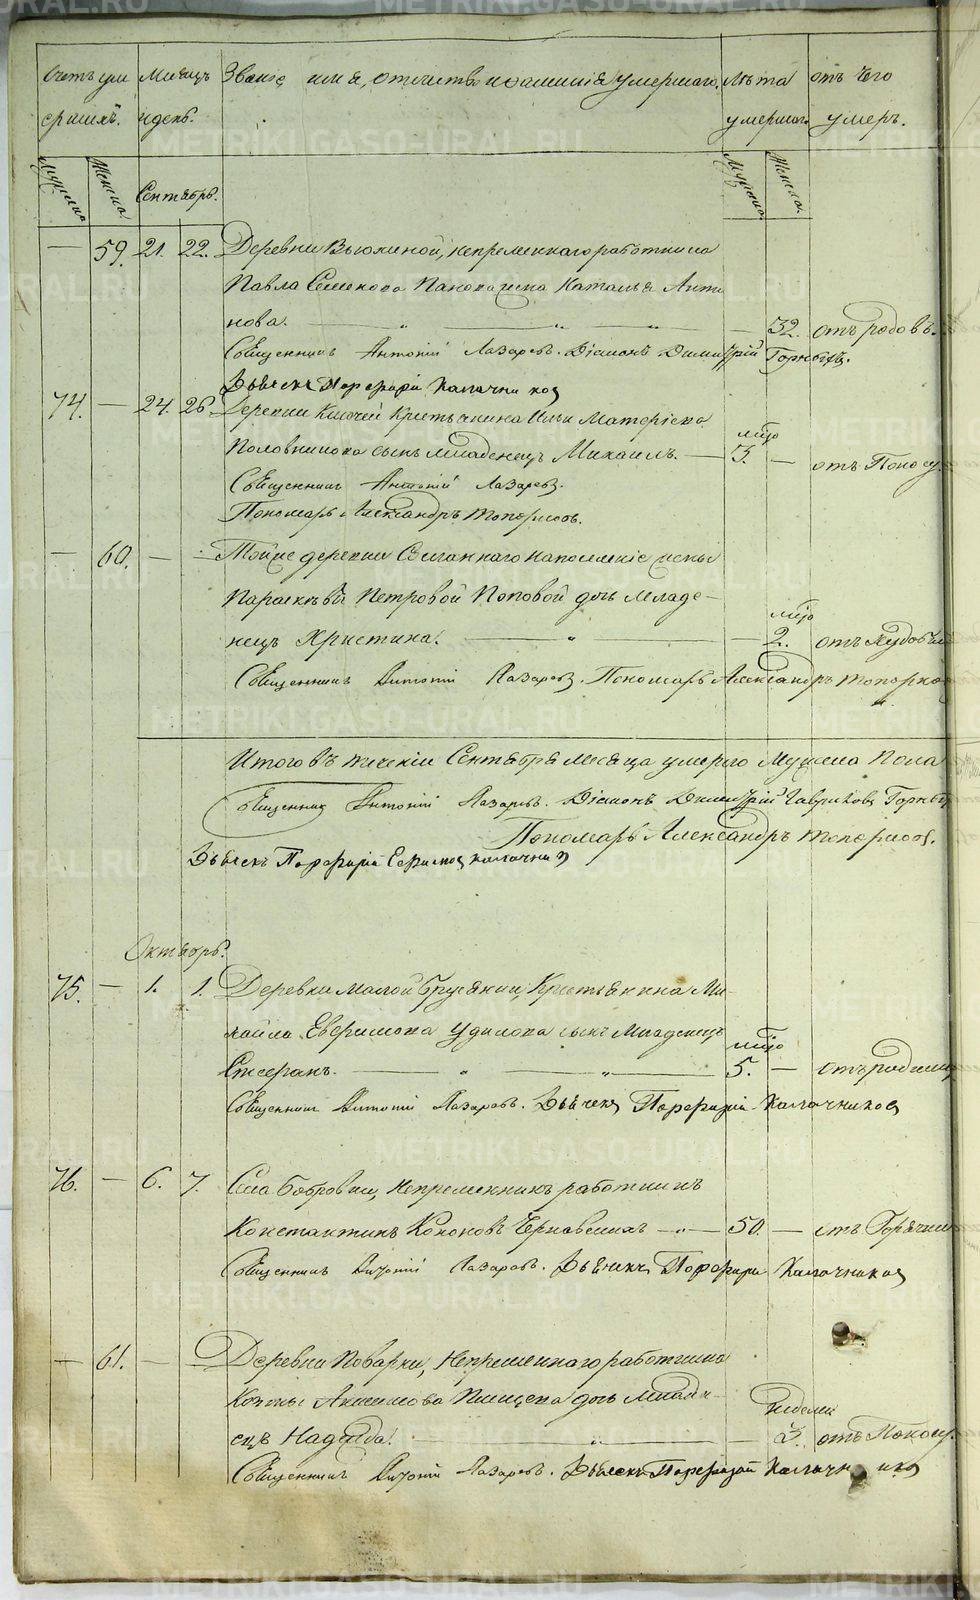 Счетъ уме Месяцъ Званіе, имя, отчество и фамилія умершаго. Лѣта отъ чего
ршихъ. и день. умершаго. умеръ.
Мужска Женска Сентябрь. Мужска Женска
— 59. 21. 22. Деревни Вьюхиной, непременнаго работника
Павла Семенова жена Наталья Анти
нова. — 32. отъ родовъ.
Священникъ Антоній Лазаревъ. Діаконъ Димитрій Горныхъ.
Дьячекъ Порфирій Калачниковъ
74. — 24. 26. Деревни Ключей Крестьянина Ильи
Половникова сынъ младенецъ Михаилъ. — 3. — отъ Поносу.
Священникъ Антоній Лазаревъ.
Пономарь Александръ Топорковъ.
— 60. — — Тойже деревни жены
Параскевы Петровой Поповой дочь Младе-
нецъ Христина. — 2. отъ
Священникъ Антоній Лазаревъ. Пономарь Александръ Топорковъ
Итого въ теченіи Сентября месяца умерло Мужеска Пола
Священникъ Антоній Лазаревъ. Діаконъ Димитрій Гавриловъ
Пономарь Александръ Топорковъ.
Дьячекъ Порфирій Ефимовъ Калачник
Октябрь.
75. — 1. 1. Деревни Малой Брусянки, Крестьянина Ми-
хайла Удилова сынъ Младенецъ
— 5. — отъ родимц
Священникъ Антоній Лазаревъ. Дьячекъ Порфирій Калачниковъ
76. — 6. 7. Села Бобровки, Непременникъ работникъ
Константинъ Кононовъ — 50. — отъ Горячки
Священникъ Антоній Лазаревъ. Дьячекъ Порфирій Калачниковъ
— 61. — — Деревни Поварни, Непременнаго работника
Козмы дочь Младе-
нецъ Надежда. недели
3. отъ Поносу.
Священникъ Антоній Лазаревъ. Дьячекъ Порфирій Калачниковъ
METRIKI.GASO-URAL.RU